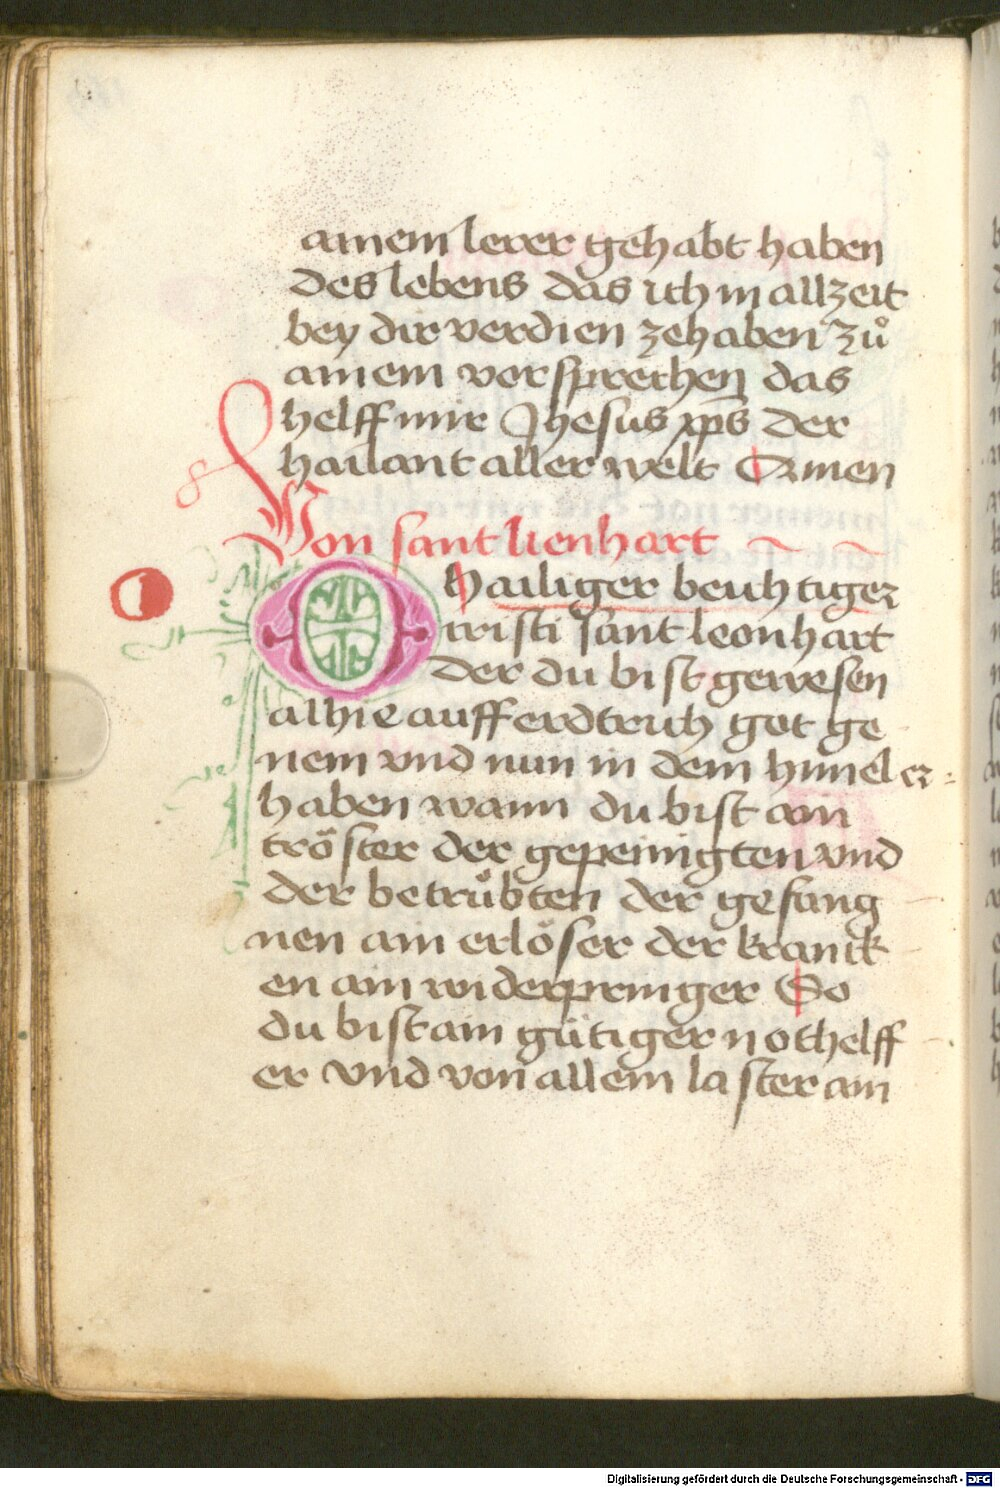 ainem lerer gehabt haben
des lebens das ich in allzeit
bey dir verdien zehaben zů
ainem versprechen das
helff mir Jhesus xp̄s der
hailant aller welt Amen
Von sant lienhart
O Hailiger beichtiger
cristi sant leonhart
der du bist gewesen
alhie auff erdtrich got ge
nem vnd nun in dem himel er
haben wann du bist ain
tröster der gepeinigten vnd
der betrůbten der gefang
nen ain erlöser der kranck
en ain widerpringer So
du bist ain gütiger nothelff
er vnd von allem laster ain
Digitalisierung gefördert durch die Deutsche Forschungsgemeinschaft - DFG